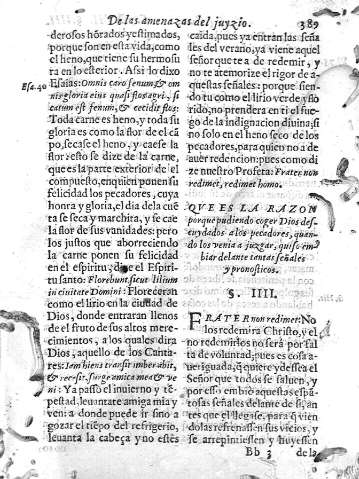 De las amenazas del juyzio. 389
derosos hõrados y estimados,
porque son en esta vida, como
el heno, que tiene su hermosu
ra en lo exterior. Assi lo dixo
Esa. 40 Esaias: Omnis caro fœnum & om
nis gloria eius quasi flos agri, si
catum est fœnum, & cecidit flos:
Toda carne es heno, y toda su
gloria es como la flor de el cã
po, secase el heno, y caese la
flor: esto se dize de la carne,
que es la parte exterior de el
compuesto, en quien ponen su
felicidad los pecadores, cuya
honra y gloria, el dia de la cuẽ
ta se seca y marchita, y se cae
la flor de sus vanidades: pero
los justos que aborreciendo
la carne ponen su felicidad
en el espiritu: dize el Espiri-
tu santo: Florebunt sicut lilium
in ciuitate Domini: Floreceran
como el lirio en la ciudad de
Dios, donde entraran llenos
de el fruto de sus altos mere-
cimientos, a los quales dira
Dios, aquello de los Canta-
res: Iam hiems transijt imber abijt,
& recessit, surge amica mea & ve
ni: Ya passo el inuierno y tẽ-
pestad, leuantate amiga mia y
ven: a donde puede ir sino a
gozar el tiẽpo del refrigerio,
leuanta la cabeça y no estès
caida, pues ya entran las seña
les del verano, ya viene aquel
señor que te a de redemir, y
no te atemorize el rigor de a-
questas señales: porque sien-
do tu como el lirio verde, y flo
rido, no prendera en ti el fue-
go de la indignacion diuina, si
no solo en el heno seco de los
pecadores, para quien no a de
auer redencion: pues como di
ze nuestro Profeta: Frater non
redimet, redimet homo.
QVE ES LA RAZON
porque pudiendo coger Dios des-
cuydados a los pecadores, quan-
do los venia a juzgar, quiso em-
biar delante tantas señales
y pronosticos.
§. IIII.
FRATER non redimet: No
los redemira Christo, y el
no redemirlos no serà por fal
ta de voluntad, pues es cosa a-
ueriguada, q̃ quiere y dessea el
Señor que todos se saluen, y
por esso embiò aquellas espã-
tosas señales delante de si, an
tes que el llegasse, para q̃ vien
dolas refrenassen sus vicios, y
se arrepintiessen y huyessen
Bb 3 de la